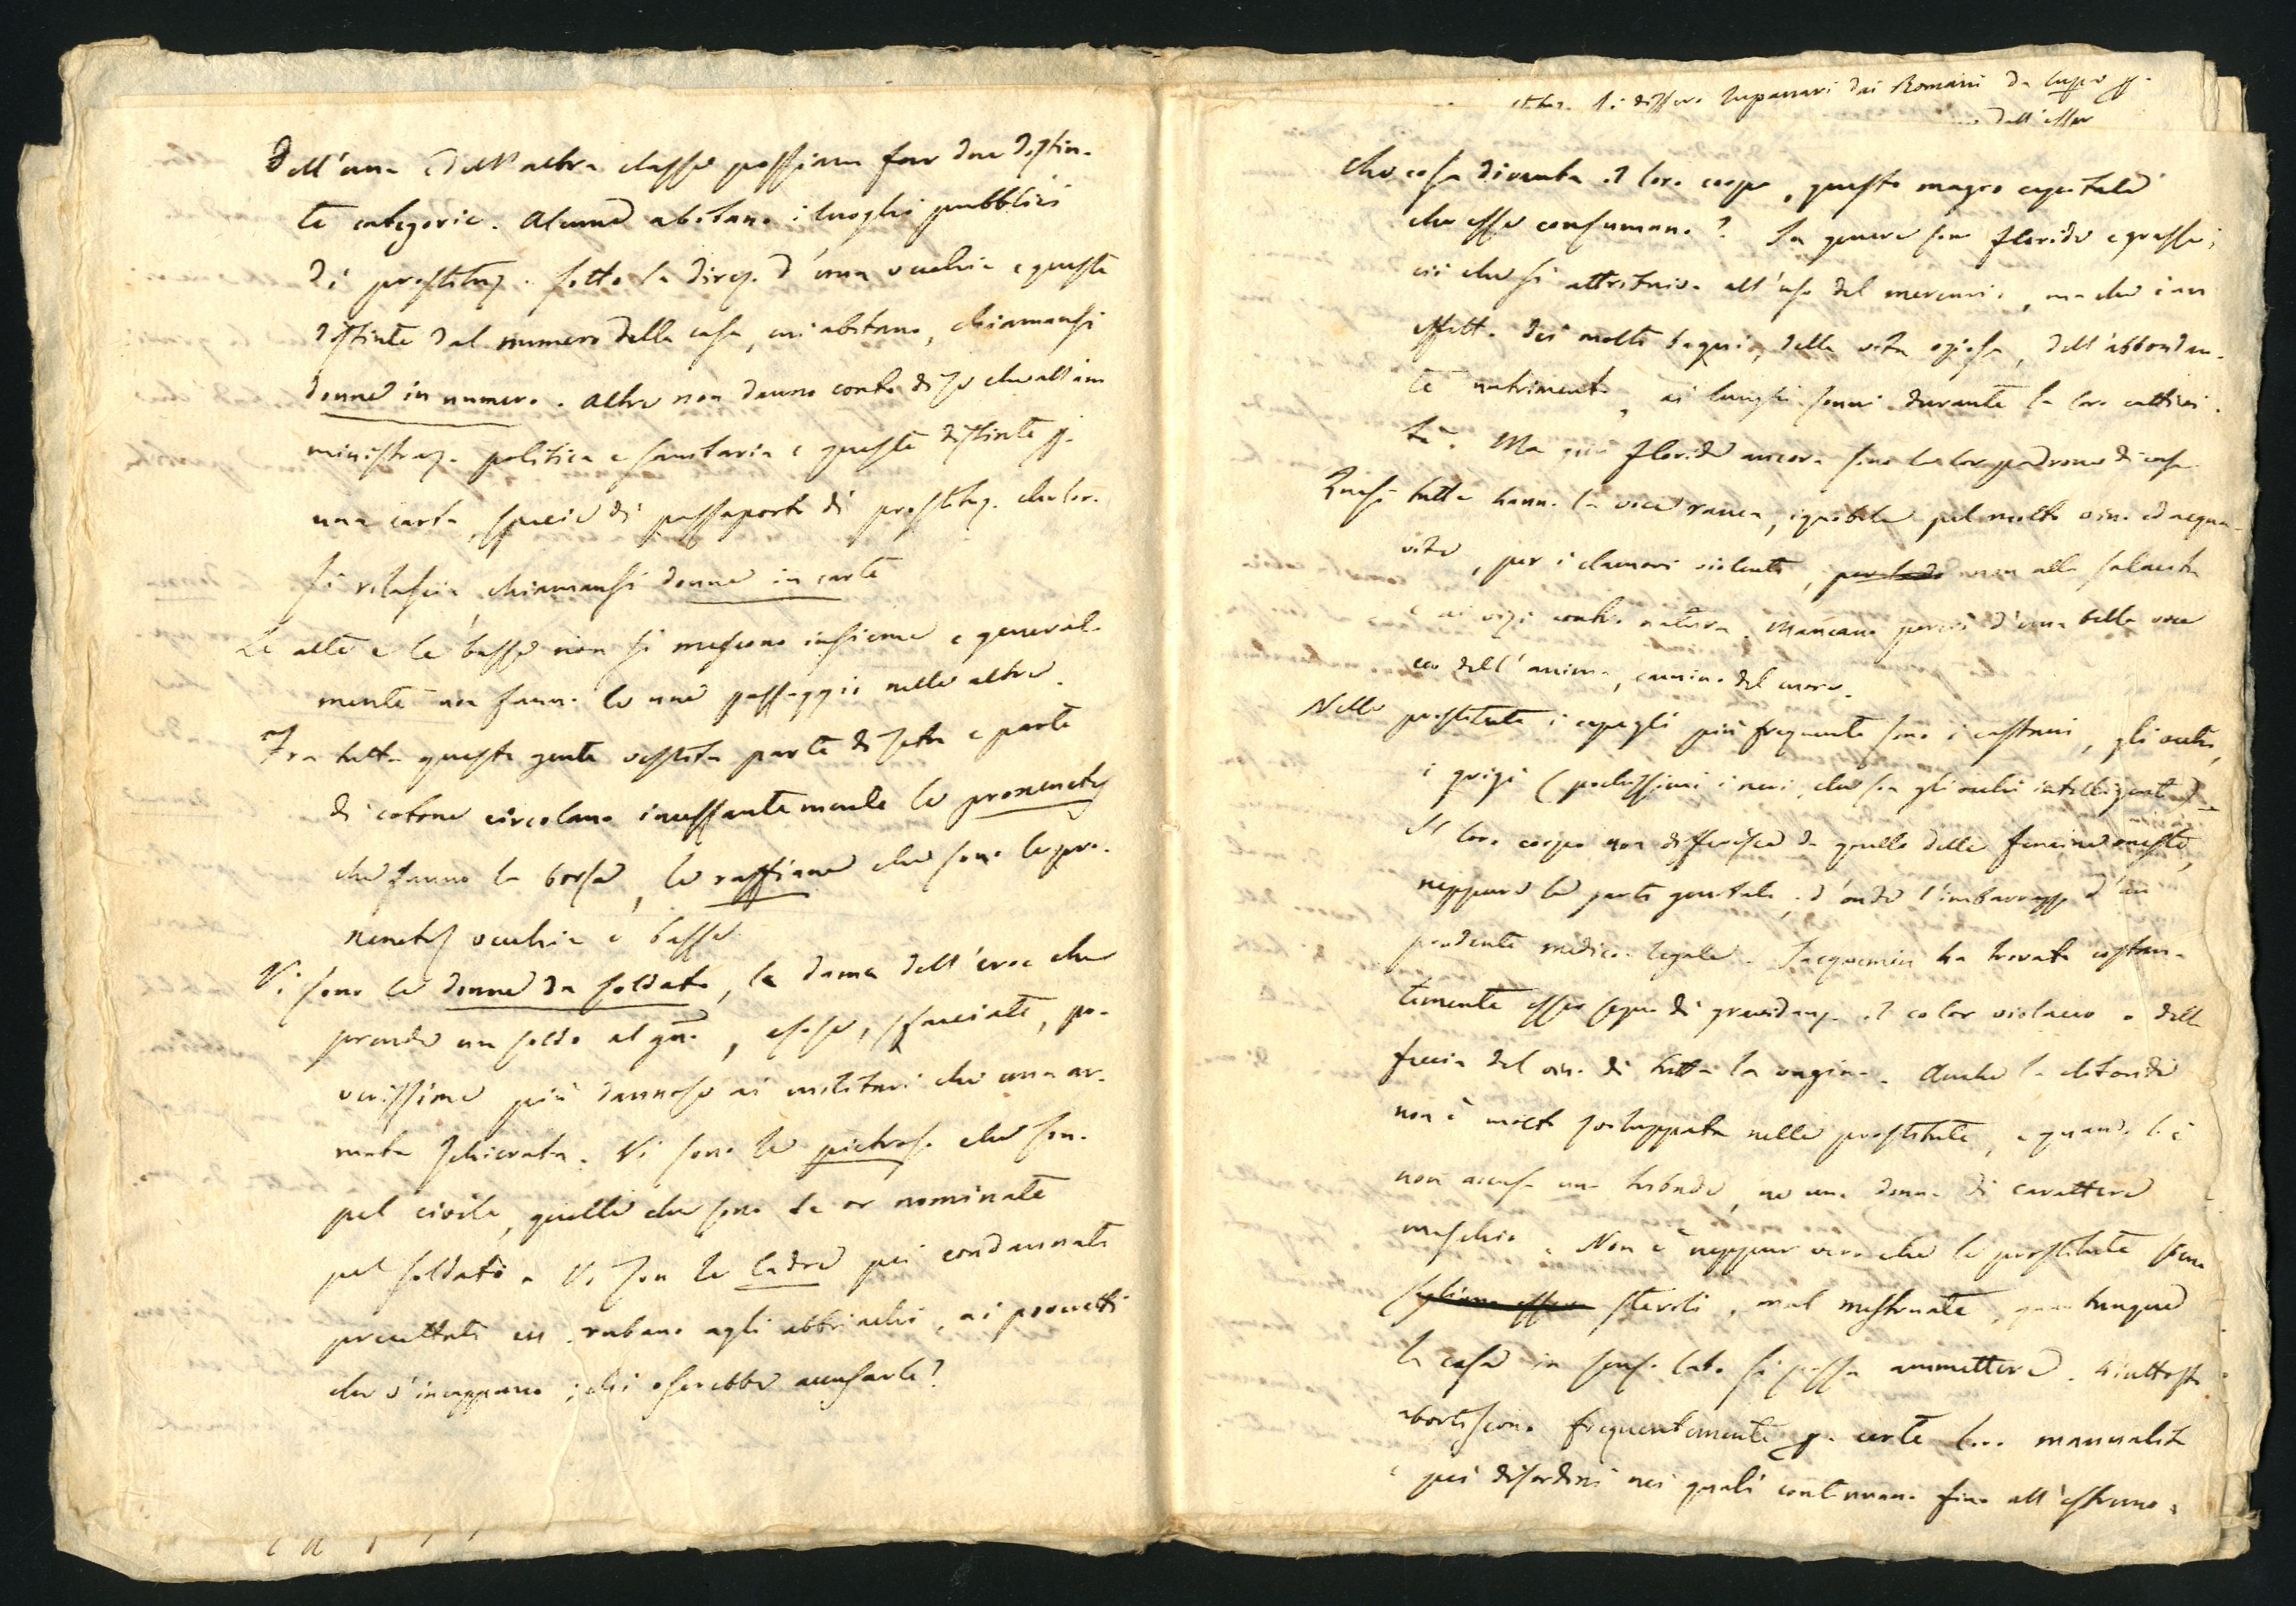 Dell'una e dell'altra classe possiam far due distin-
te categorie. Alcune abitano i luoghi pubblici
di prostituz. sotto la direz. d'una vecchia e queste
distinte dal numero della casa, cui abitano, chiamansi
donne in numero. Altre non danno conto di se che all'am
ministraz. politica e sanitaria e queste distinte p.
una carta, specie di passaporto di prostituz. che lor.
si rilascia chiamansi donne in carte
Le alte e le basse non si mescono insieme e general-
mente non fanno le une passaggio nelle altre.
Fra tutta questa gente vestita parte di seta e parte
di cotone circolano incessantemente le
che fanno la borsa, le ruffiane che sono le pro-
vecchie e basse.
Vi sono le donne da soldato, la dama dell'eroe che
prende un soldo al gno, esose, sfacciate, po-
verissime più dannose ai militari che una ar-
mata schierata. Vi sono le pietrose che son
pel civile, quelle che sono le or nominate
pel soldato. Vi son le ladre pei condannati
precettati cui rubano agli abbriachi, ai poveretti
che v'incappano; chi oserebbe accusarle?
Si dissero lupanari dai Romani da lupa p.
dall'esser
Che cosa diventa il loro corpo, questo magro capitale
che esse consumano? In genere sono floride e grasse;
ciò che si attribuiva all'uso del mercurio, ma che è an
effetto dei molti bagni, della vita oziosa, dell'abbondan-
te nutrimento, ai lunghi sonni durante la loro cattivi-
tà. Ma più floride ancora sono le lor padrone di casa.
Quasi tutte hanno la voce rauca, ignobile pel molto vino ed acqua-
vite, per i clamori violenti, non alla
e ai vizi contro natura. Mancano perciò d'una bella voce
eco dell'anima, camino del cuore.
Nelle prostitute i capegli più frequenti sono i castani, gli occhi,
i grigi (pochissimi i neri, che son gli occhi intelligenti).
Il loro corpo non differisce da quello delle femine oneste,
neppure le parti genitali; d'onde l'imbarazzo d'un
prudente medico-legale. Jacquemin ha trovato costan-
temente esser segno di gravidanz. il color violaceo o della
feccia del vino di tutta la vagina. Anche la clitoride
non è molto sviluppata nelle prostitute, e quando lo è
non accusa una tribade, ne una donna di carattere
maschio. Non è neppur vero che le prostitute siano
sterili, mal mestruate, quantunque
la cosa in senso lato si possa ammettere. Piuttosto
abortiscono frequentemente p. certe loro manualità
e pei disordini nei quali continuano fino all'estremo.